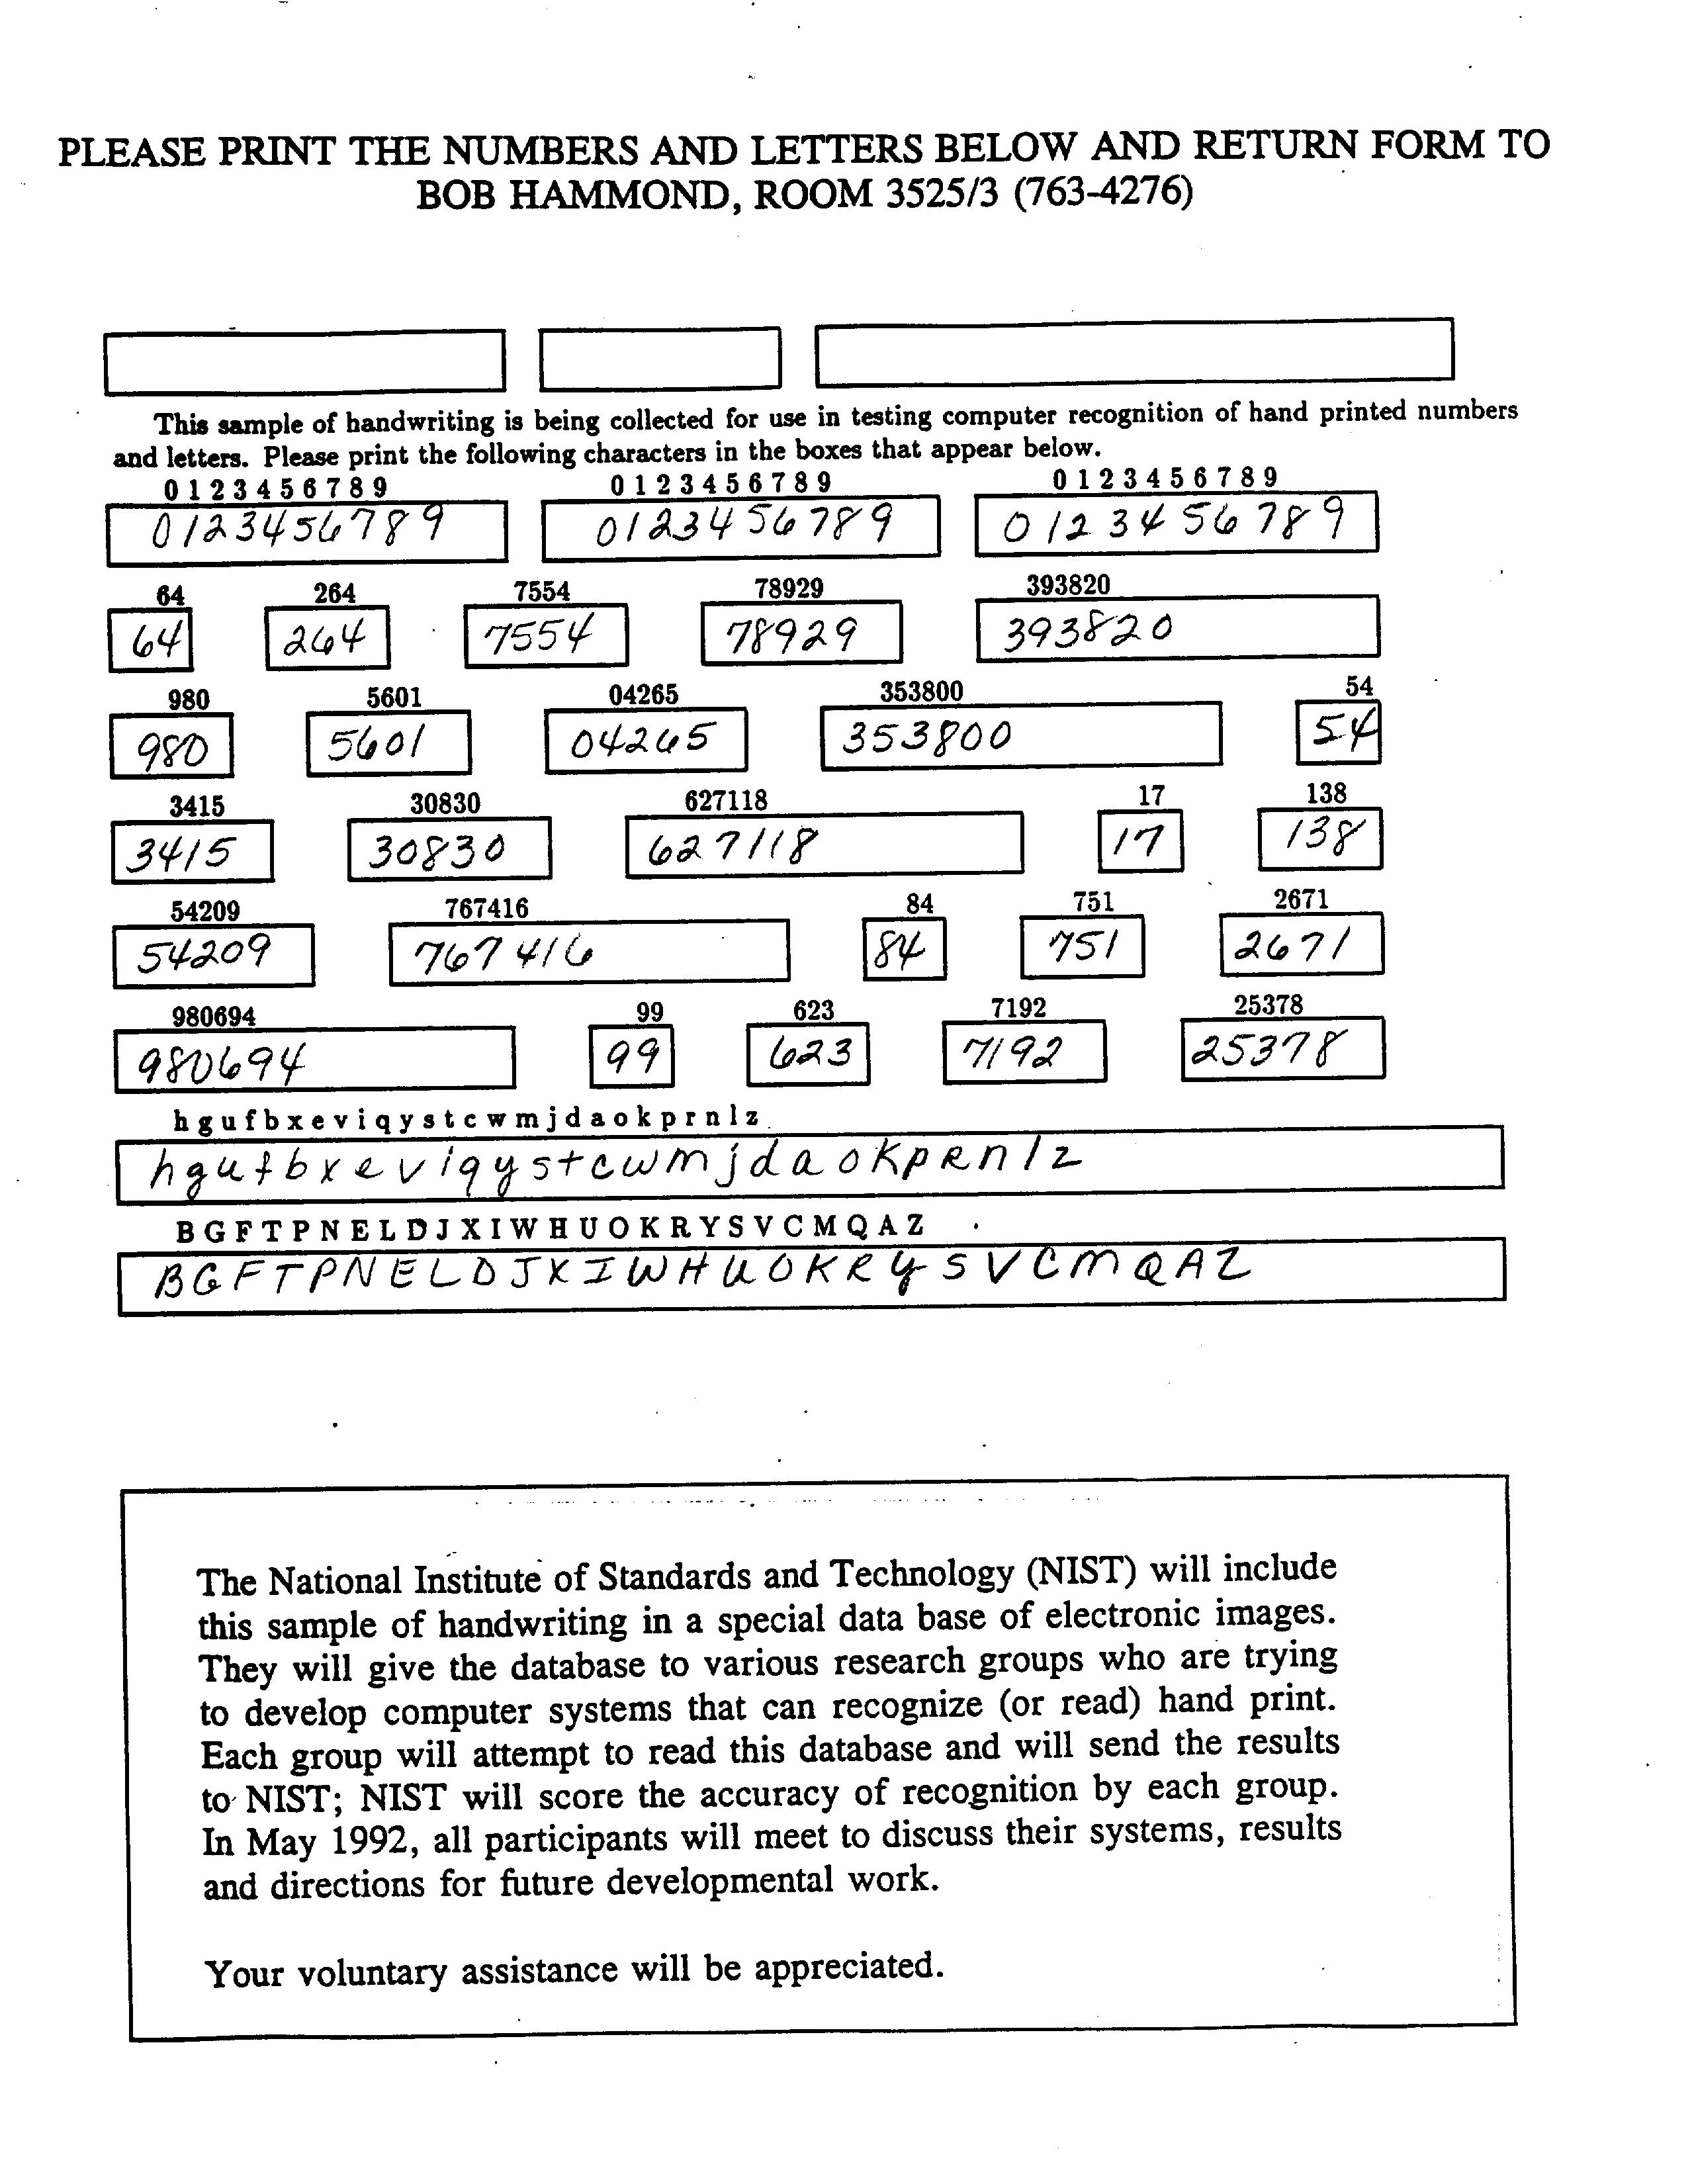 PLEASE PRINT THE NUMBERS AND LETTERS BELOW AND RETURN FORM TO
BOB HAMMOND, ROOM 3525/3 (763-4276)
This sample of handwriting is being collected for use in testing computer recognition of hand printed numbers
and letters. Please print the following characters in the boxes that appear below.
0 1 2 3 4 5 6 7 8 9 0 1 2 3 4 5 6 7 8 9 0 1 2 3 4 5 6 7 8 9
0123456789 0123456789 0123456789
64 264 7554 78929 393820
64 264 7554 78929 393820
980 5601 04265 353800 54
980 5601 04265 353800 54
3415 30830 627118 17 138
3415 30830 627118 17 138
54209 767416 84 751 2671
54209 767416 84 751 2671
980694 99 623 7192 25378
980694 99 623 7192 25378
h g u f b x e v i q y s t c w m j d a o k p r n l z
h g u f b x e v i q y s t c w m j d a o K p R n l z
B G F T P N E L D J X I W H U O K R Y S V C M Q A Z
B G F T P N E L D J X I W H U O K R Y S V C M Q A Z
The National Institute of Standards and Technology (NIST) will include
this sample of handwriting in a special data base of electronic images.
They will give the database to various research groups who are trying
to develop computer systems that can recognize (or read) hand print.
Each group will attempt to read this database and will send the results
to NIST; NIST will score the accuracy of recognition by each group.
In May 1992, all participants will meet to discuss their systems, results
and directions for future developmental work.
Your voluntary assistance will be appreciated.